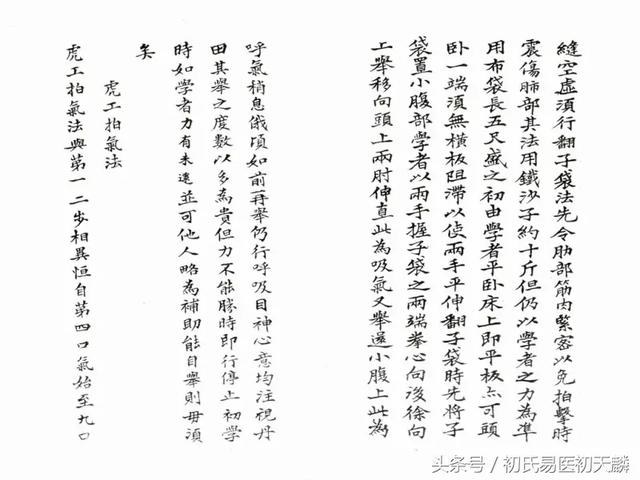 縫空虛須行翻子袋法先令肋部筋肉緊密以免拍擊時
震傷肺部其法用鐵沙子約十斤但仍以學者之力為準
用布袋長五尺盛之初由學者平卧床上即平板点可頭
卧一端須無橫板阻滯以侦兩手平伸翻子袋時先將子
袋置小腹部學者以兩手握子袋之兩端拳心向後徐向
上舉移向頭上兩肘伸直此為吸氣又舉還小腹上此為
呼氣稍息俄頃如前再舉仍行呼吸目神心意均注視丹
田其舉之度數以多為貴但力不能勝時即行停止初學
時如學者力有未逮並可他人略為補助能自舉則毋須
矣
虎工拍氣法
虎工拍氣法與第一二步相異恒自第四口氣始至九口
头条号 / 初氏易医初天麟